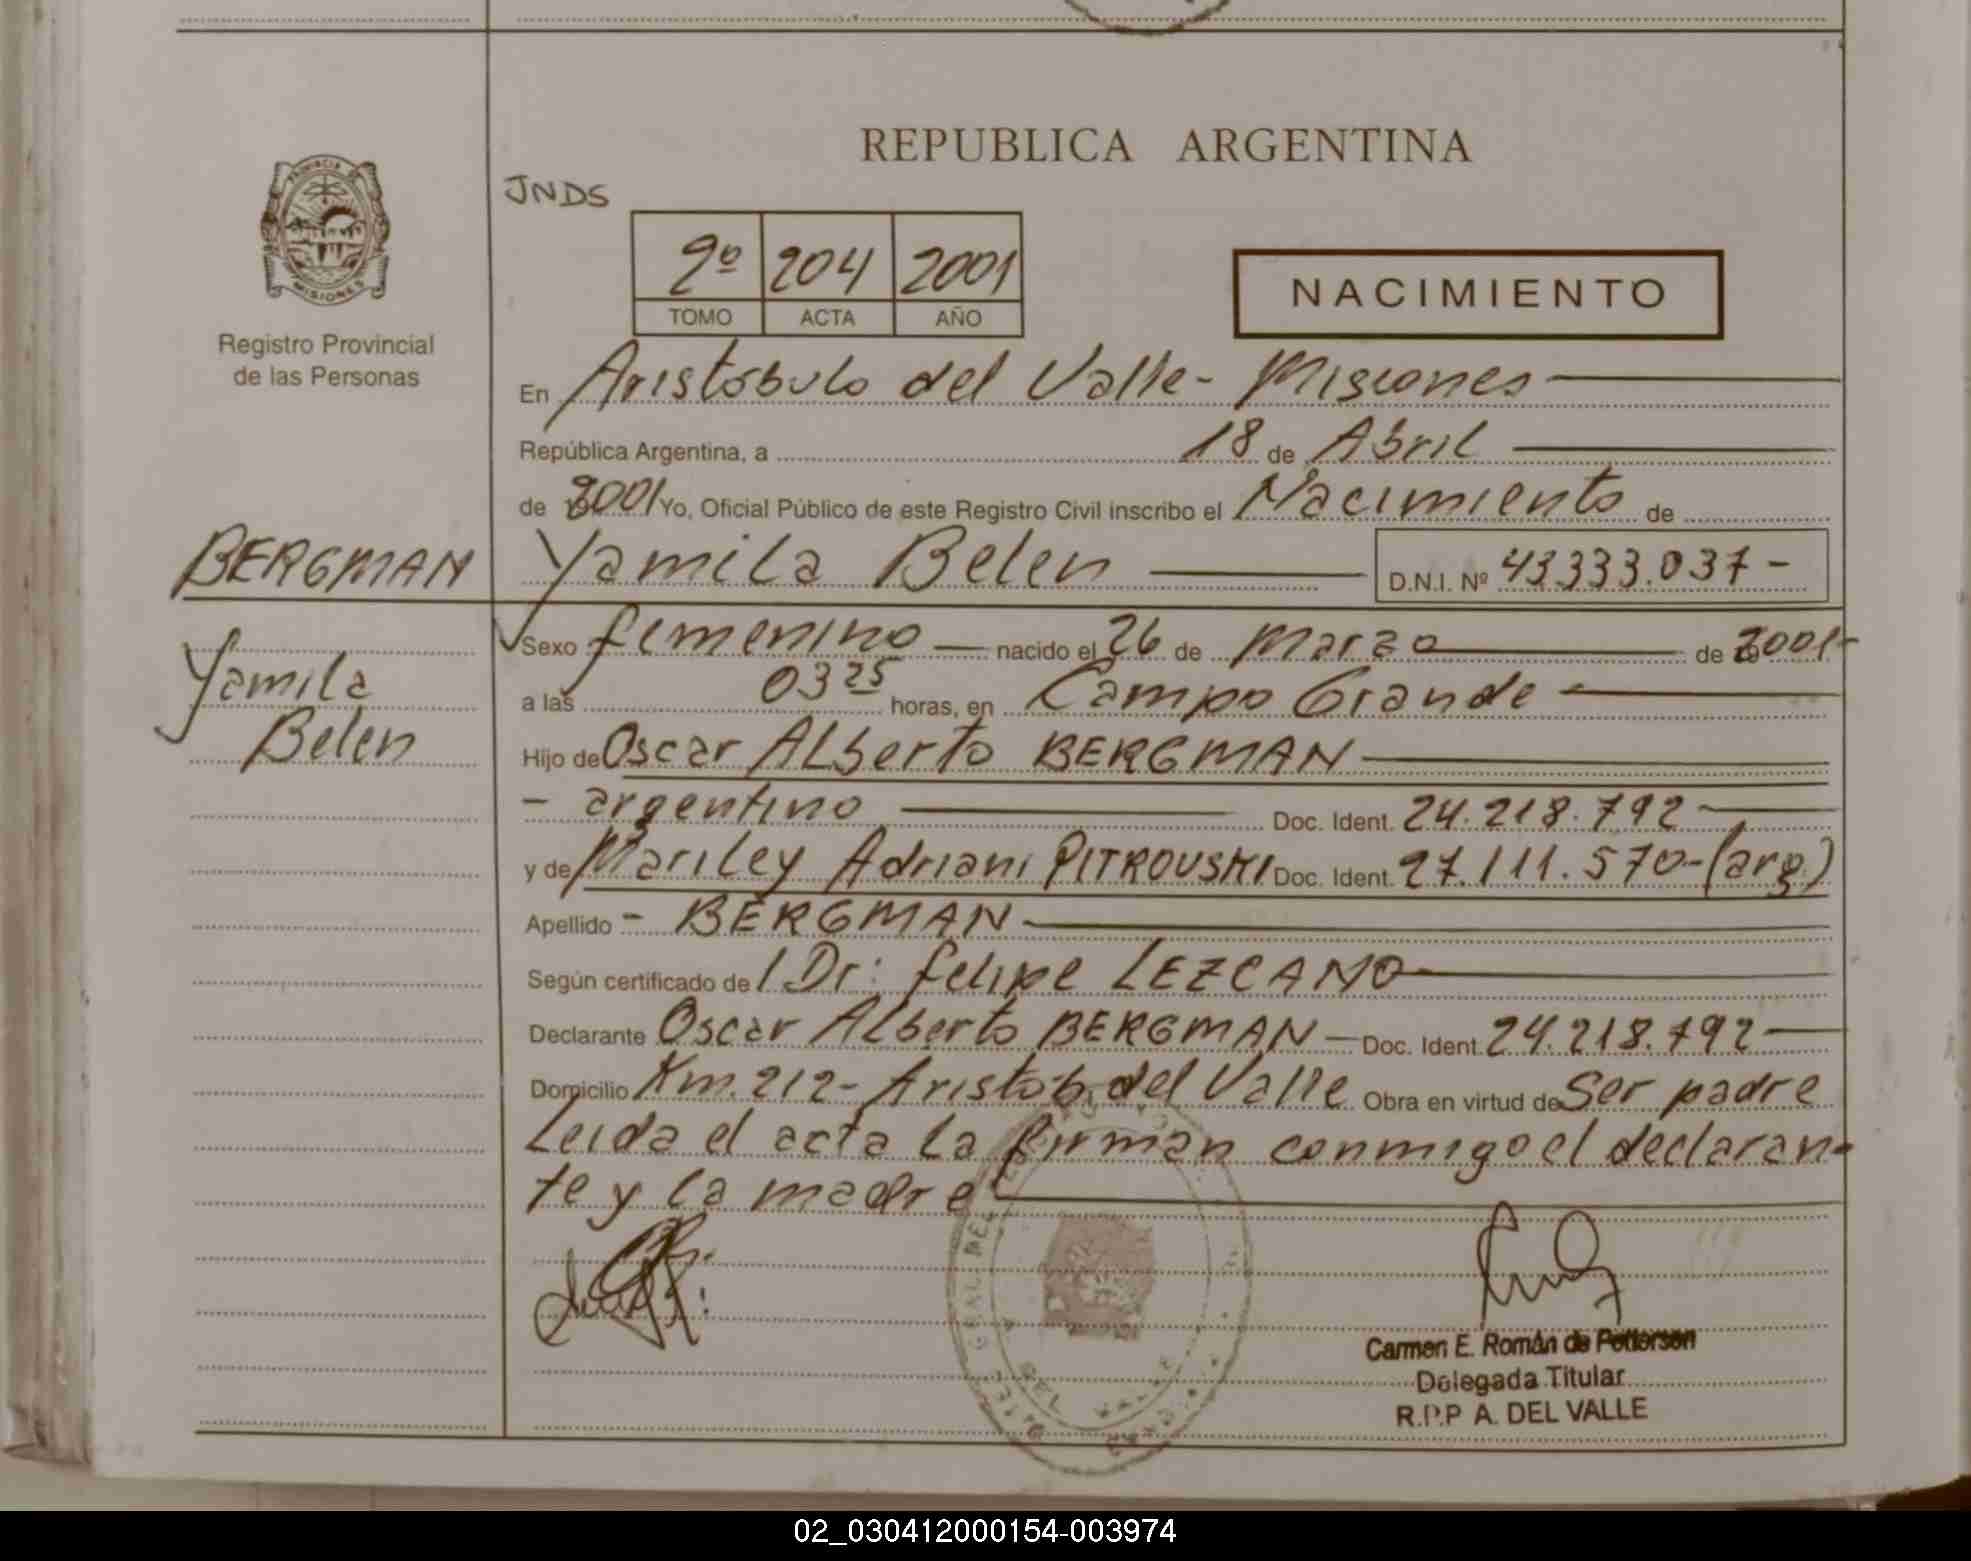 REPUBLICA ARGENTINA
JNDS
PROVINCIA DE MISIONES
Registro Provincial
de las Personas
2º 204 2001
TOMO ACTA AÑO
NACIMIENTO
En Aristóbulo del Valle - Misiones
República Argentina, a 18 de Abril
de 2001 Yo, Oficial Público de este Registro Civil inscribo el Nacimiento de
BERGMAN
Yamila Belen
Yamila Belen D.N.I. Nº 43.333.037-
Sexo femenino nacido el 26 de Marzo de 2001-
a las 03 25 horas, en Campo Grande
Hijo de Oscar Alberto BERGMAN
- argentino Doc. Ident. 24.218.792
y de Mariley Adriani PITROUSKI Doc. Ident. 27.111.570-(arg)
Apellido - BERGMAN
Según certificado de l Dr: Felipe LEZCANO
Declarante Oscar Alberto BERGMAN Doc. Ident. 24.218.792
Domicilio Km. 212- Aristób. del Valle Obra en virtud de Ser padre
Leida el acta la firman conmigo el declaran-
te y la madre
Carmen E. Román de Petterson
Delegada Titular
R.P.P A. DEL VALLE
02_030412000154-003974